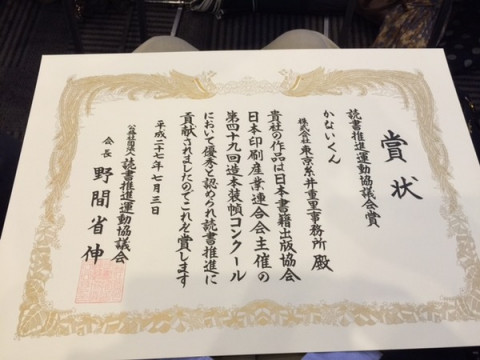 賞状
読書推進運動協議会賞
かないくん
株式会社東京糸井重里事務所殿
貴社の作品は日本書籍出版協会
日本印刷産業連合会主催の
第四十九回造本装幀コンクール
において優秀と認められ読書推進に
貢献されましたのでこれを賞します
平成二十七年七月三日
公益社団法人読書推進運動協議会
会長野間省伸